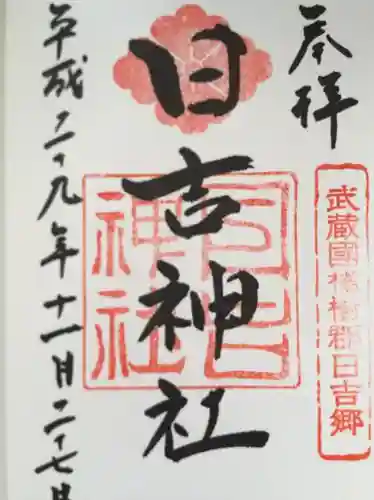 奉拝
武蔵國橘樹郡日吉郷
日吉神社
日吉神社
平成二十九年十一月二十七日